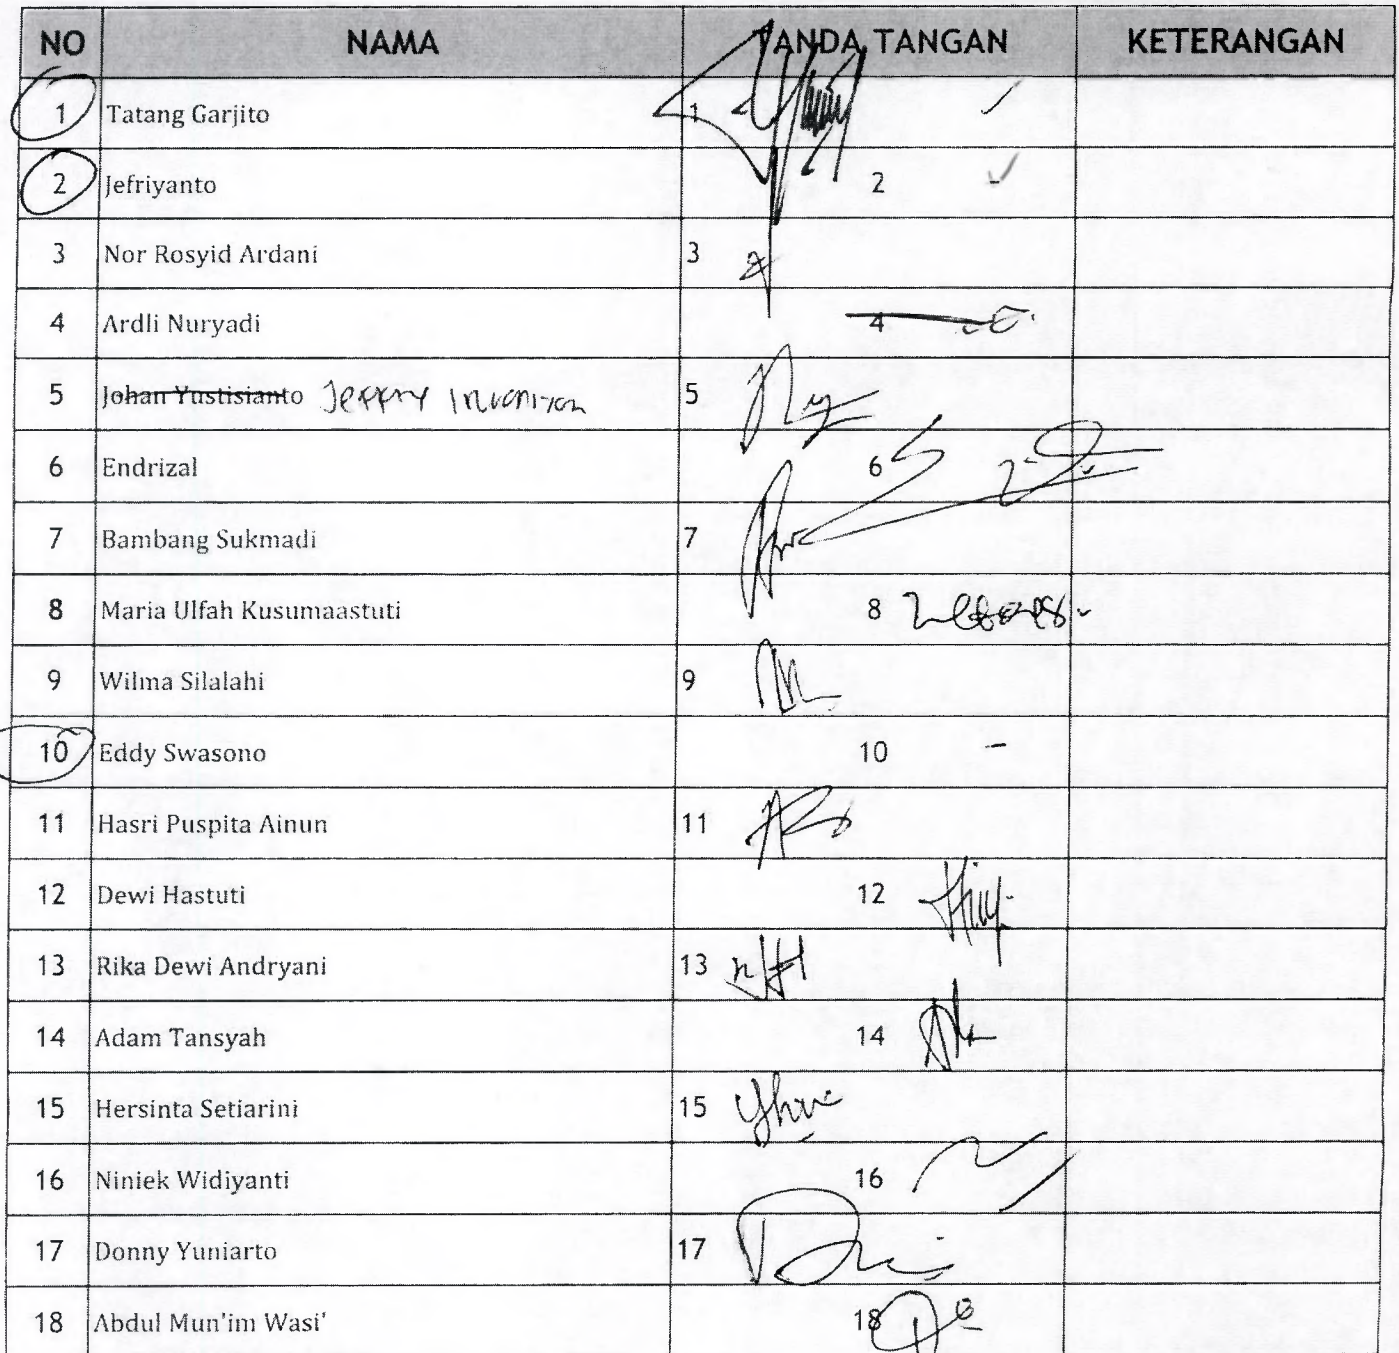 NO NAMA TANDA TANGAN KETERANGAN
1 Tatang Garjito 1
2 Jefriyanto 2
3 Nor Rosyid Ardani 3
4 Ardli Nuryadi 4
5 Johan Yustisianto Jeffry 5
6 Endrizal 6
7 Bambang Sukmadi 7
8 Maria Ulfah Kusumaastuti 8
9 Wilma Silalahi 9
10 Eddy Swasono 10 -
11 Hasri Puspita Ainun 11
12 Dewi Hastuti 12
13 Rika Dewi Andryani 13
14 Adam Tansyah 14
15 Hersinta Setiarini 15
16 Niniek Widiyanti 16
17 Donny Yuniarto 17
18 Abdul Mun'im Wasi' 18